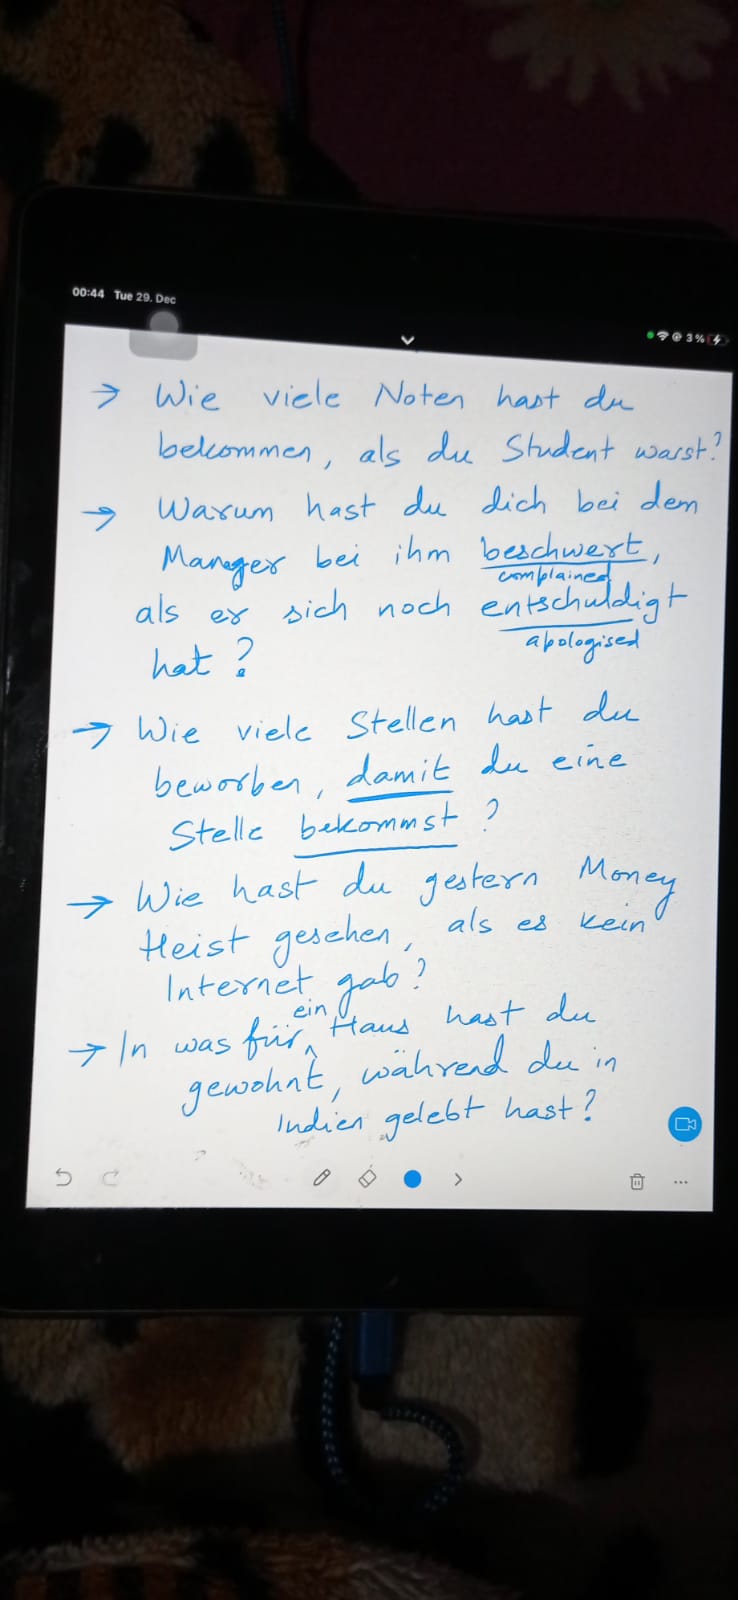 00:44 Tue 29. Dec
3%
→ Wie viele Noten hast du
bekommen, als du Student warst?
→ Warum hast du dich bei dem
Manager bei ihm beschwert,
complained
als er sich noch entschuldigt
apologised
hat?
→ Wie viele Stellen hast du
beworben, damit du eine
Stelle bekommst?
→ Wie hast du gestern Money
Heist gesehen, als es kein
Internet gab?
→ In was für ein Haus hast du
gewohnt, während du in
Indien gelebt hast?